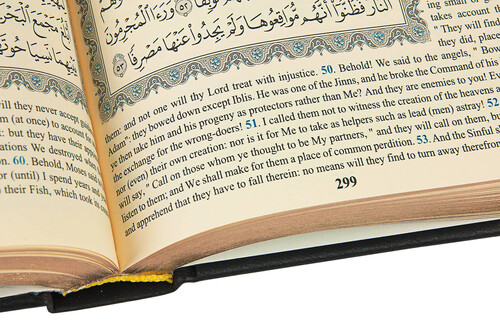 النار فظنوا أنهم مواقعوها ولم يجدوا عنها مصرفا ٥٣
٥٢ ورءا المجرمون
ing small or
takes account
"They will find
they did, place
them: and not one will thy Lord treat with injustice. 50. Behold! We said to the angels, " Bow
Adam": they bowed down except Iblis. He was one of the Jinns, and he broke the Command of his
ye then take him and his progeny as protectors rather than Me? And they are enemies to you! E
the exchange for the wrong-doers! 51. I called them not to witness the creation of the heavens a
nor (even) their own creation: nor is it for Me to take as helpers such as lead (men) astray! 52
will say, " Call on those whom ye thought to be My partners, " and they will call on them, bu
listen to them; and We shall make for them a place of common perdition. 53. And the Sinful s
and apprehend that they have to fall therein: no means will they find to turn away therefrom
299
will they never accept
m (at once) to account
: but they have their
ations We destroyed
on. 60. Behold, Moses said
or (until) I spend years
t their Fish, which took